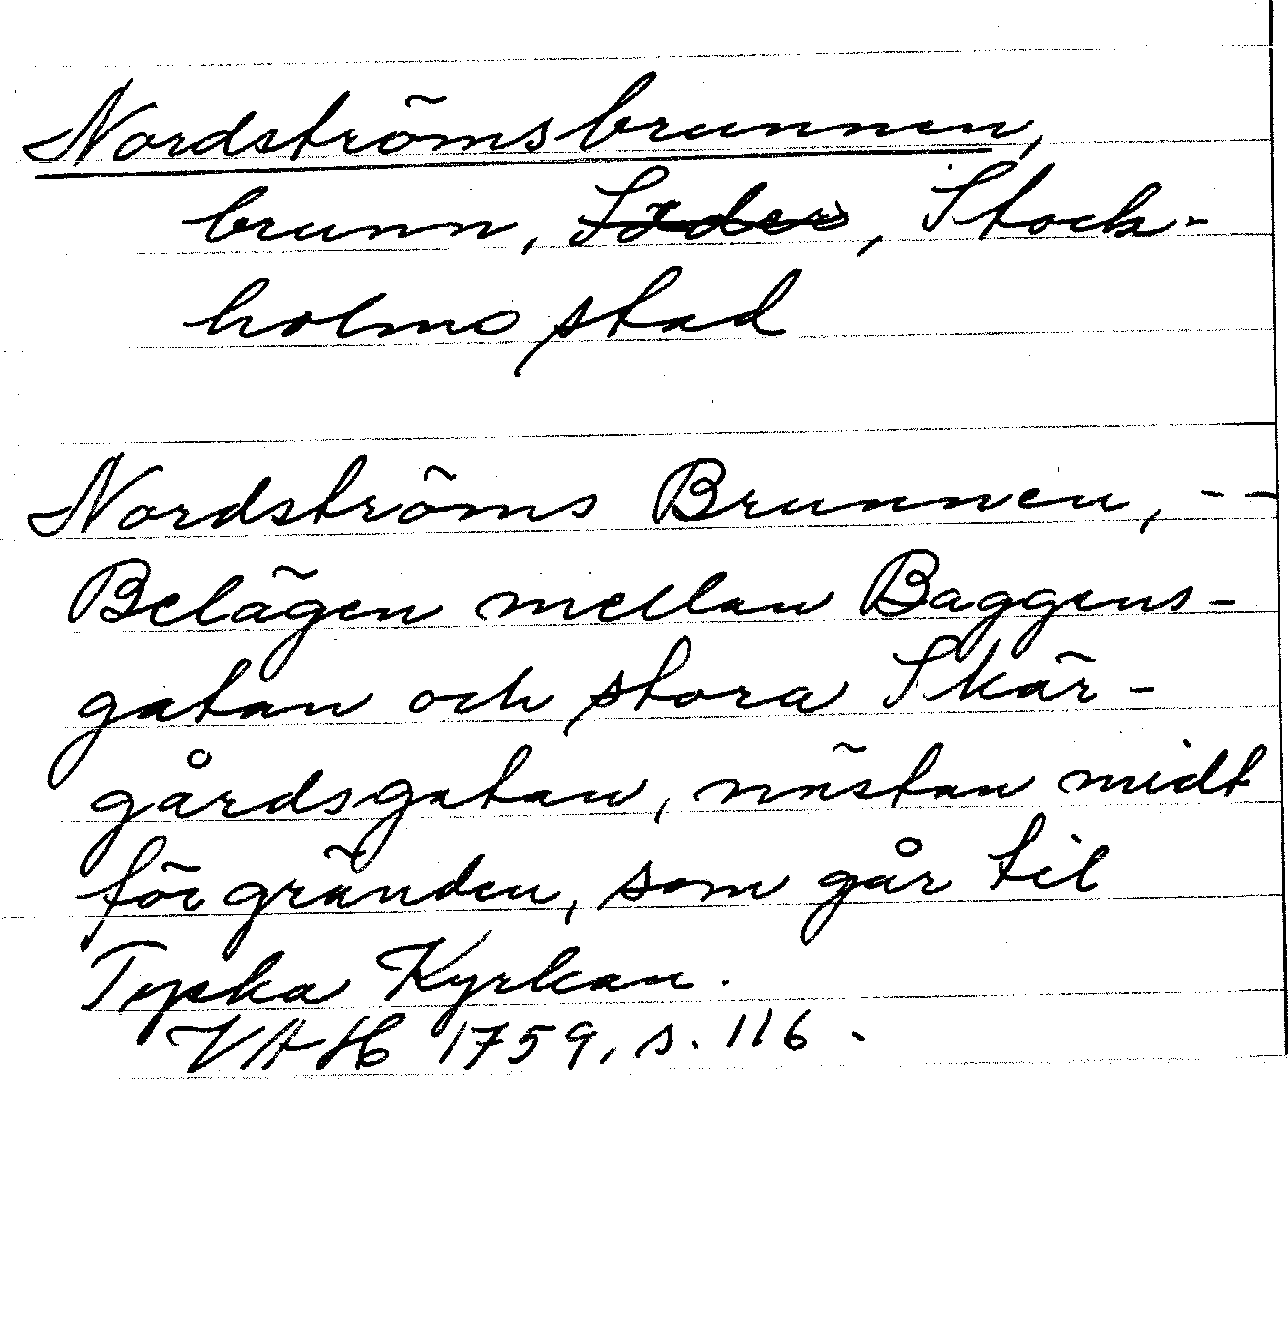 Nordströmsbrunnen,
brunn, Söder, Stock-
holms stad
Nordströms Brunnen, --
Belägen mellan Baggens-
gatan och stora Skär-
gårdsgatan, nästan midt
för gränden, som går til
Tyska Kyrkan.
VAH 1759, s. 116.